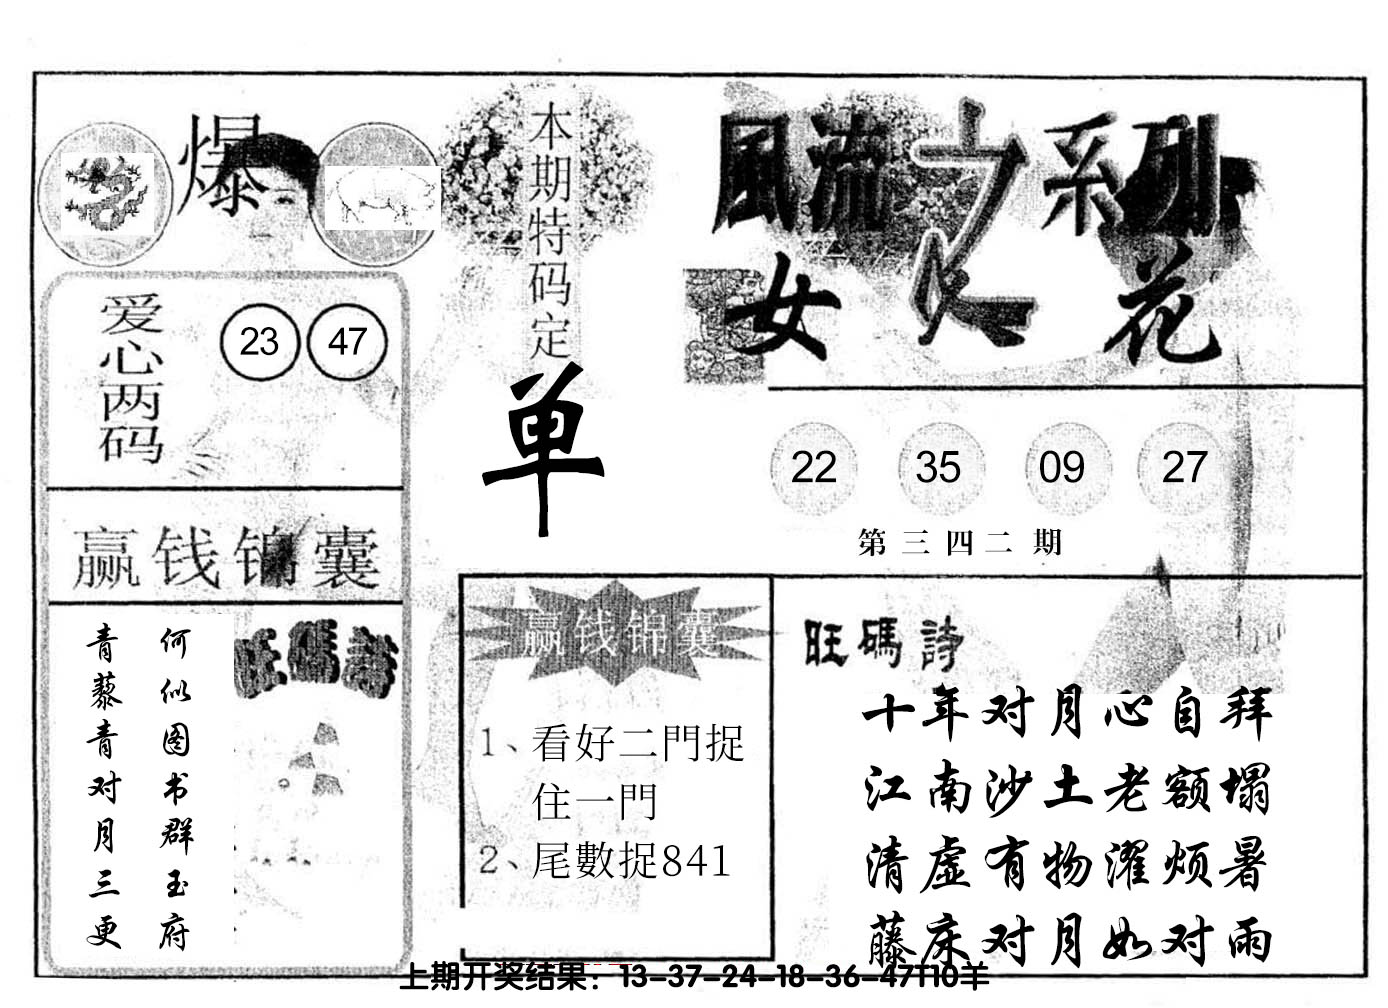 爆
爱心两码
23 47
赢钱锦囊
何似图书群玉府
青藜青对月三更
旺碼詩
本期特码定
单
風流之系列
女人花
22 35 09 27
第三四二期
赢钱锦囊
1、看好二門捉
住一門
2、尾數捉841
旺碼詩
十年对月心自拜
江南沙土老额塌
清虚有物濯烦暑
藤床对月如对雨
上期开奖结果：13-37-24-18-36-47T10羊